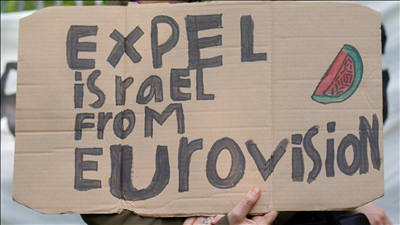 EXPEL
israel
FROM
EUROVISION